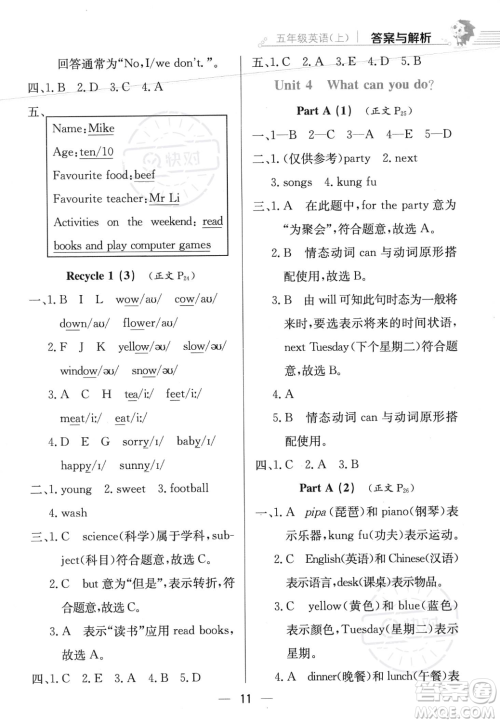 五年级英语(上) 答案与解析
回答通常为“No,I/we don't.”。
四、1. B 2. C 3. A
五、
Name: Mike
Age: ten/10
Favourite food: beef
Favourite teacher: Mr Li
Activities on the weekend: read
books and play computer games
Recycle 1 (3) (正文 P24)
一、1. B I L wow/aʊ/ cow/aʊ/
down/aʊ/ flower/aʊ/
2. F J K yellow/əʊ/ slow/əʊ/
window/əʊ/ snow/əʊ/
3. A C H tea/iː/ feet/iː/
meat/iː/ eat/iː/
4. D E G sorry/ɪ/ baby/ɪ/
happy/ɪ/ sunny/ɪ/
二、1. young 2. sweet 3. football
4. wash
三、1. C science(科学)属于学科, sub-
ject(科目)符合题意,故选 C。
2. C but 意为“但是”,表示转折,符
合题意,故选 C。
3. A 表示“读书”应用 read books,
故选 A。
四、1. C 2. B 3. C 4. D 5. A
Unit 4 What can you do?
Part A (1) (正文 P25)
一、1—B 2—D 3—A 4—C
二、1. (仅供参考)party 2. next
3. songs 4. kung fu
三、1. A 在此题中,for the party 意为
“为聚会”,符合题意,故选 A。
2. B 情态动词 can 与动词原形搭
配使用,故选 B。
3. B 由 will 可知此句时态为一般将
来时,要用表示将来的时间状语,
next Tuesday(下个星期二)符合题
意,故选 B。
4. A
5. B 情态动词 can 与动词原形搭
配使用,故选 B。
四、1. C 2. A 3. B
Part A (2) (正文 P26)
一、1. A pipa(琵琶)和 piano(钢琴)表
示乐器,kung fu(功夫)表示运动。
2. C English(英语)和 Chinese(汉语)
表示语言,desk(课桌)表示物品。
3. C yellow(黄色)和 blue(蓝色)
表示颜色,Tuesday(星期二)表示
星期。
4. A dinner(晚餐)和 lunch(午餐)表
11